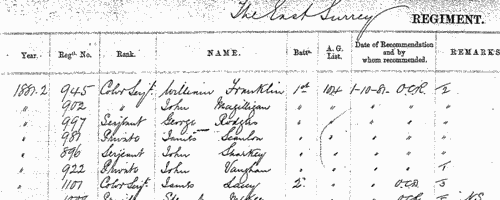 The East Surrey REGIMENT.
Year. Regtl. No. Rank. NAME. Batn. A. G. List. Date of Recommendation and by whom recommended. REMARKS
1881-2 945 Color Serjt. William Franklin 1st 104 1-10-81- O.C.R. 2
" 902 " John Magilligan " " " " "
" 997 Serjeant George Rodgers " " " " "
" 987 Private James Scanlon " " " " "
" 896 Serjeant John Sharkey " " " " "
" 922 Private John Vaughan " " " " 1
" 1101 Color Serjt. James Lacey 2. " " O.C.R. 3